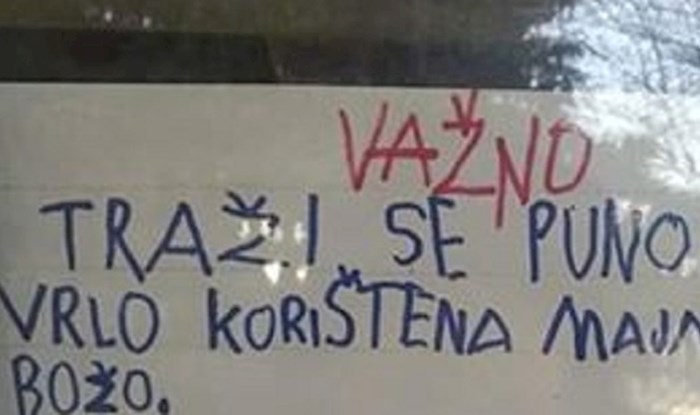 VAŽNO
TRAŽI SE PUNO
VRLO KORIŠTENA
BOŽO.